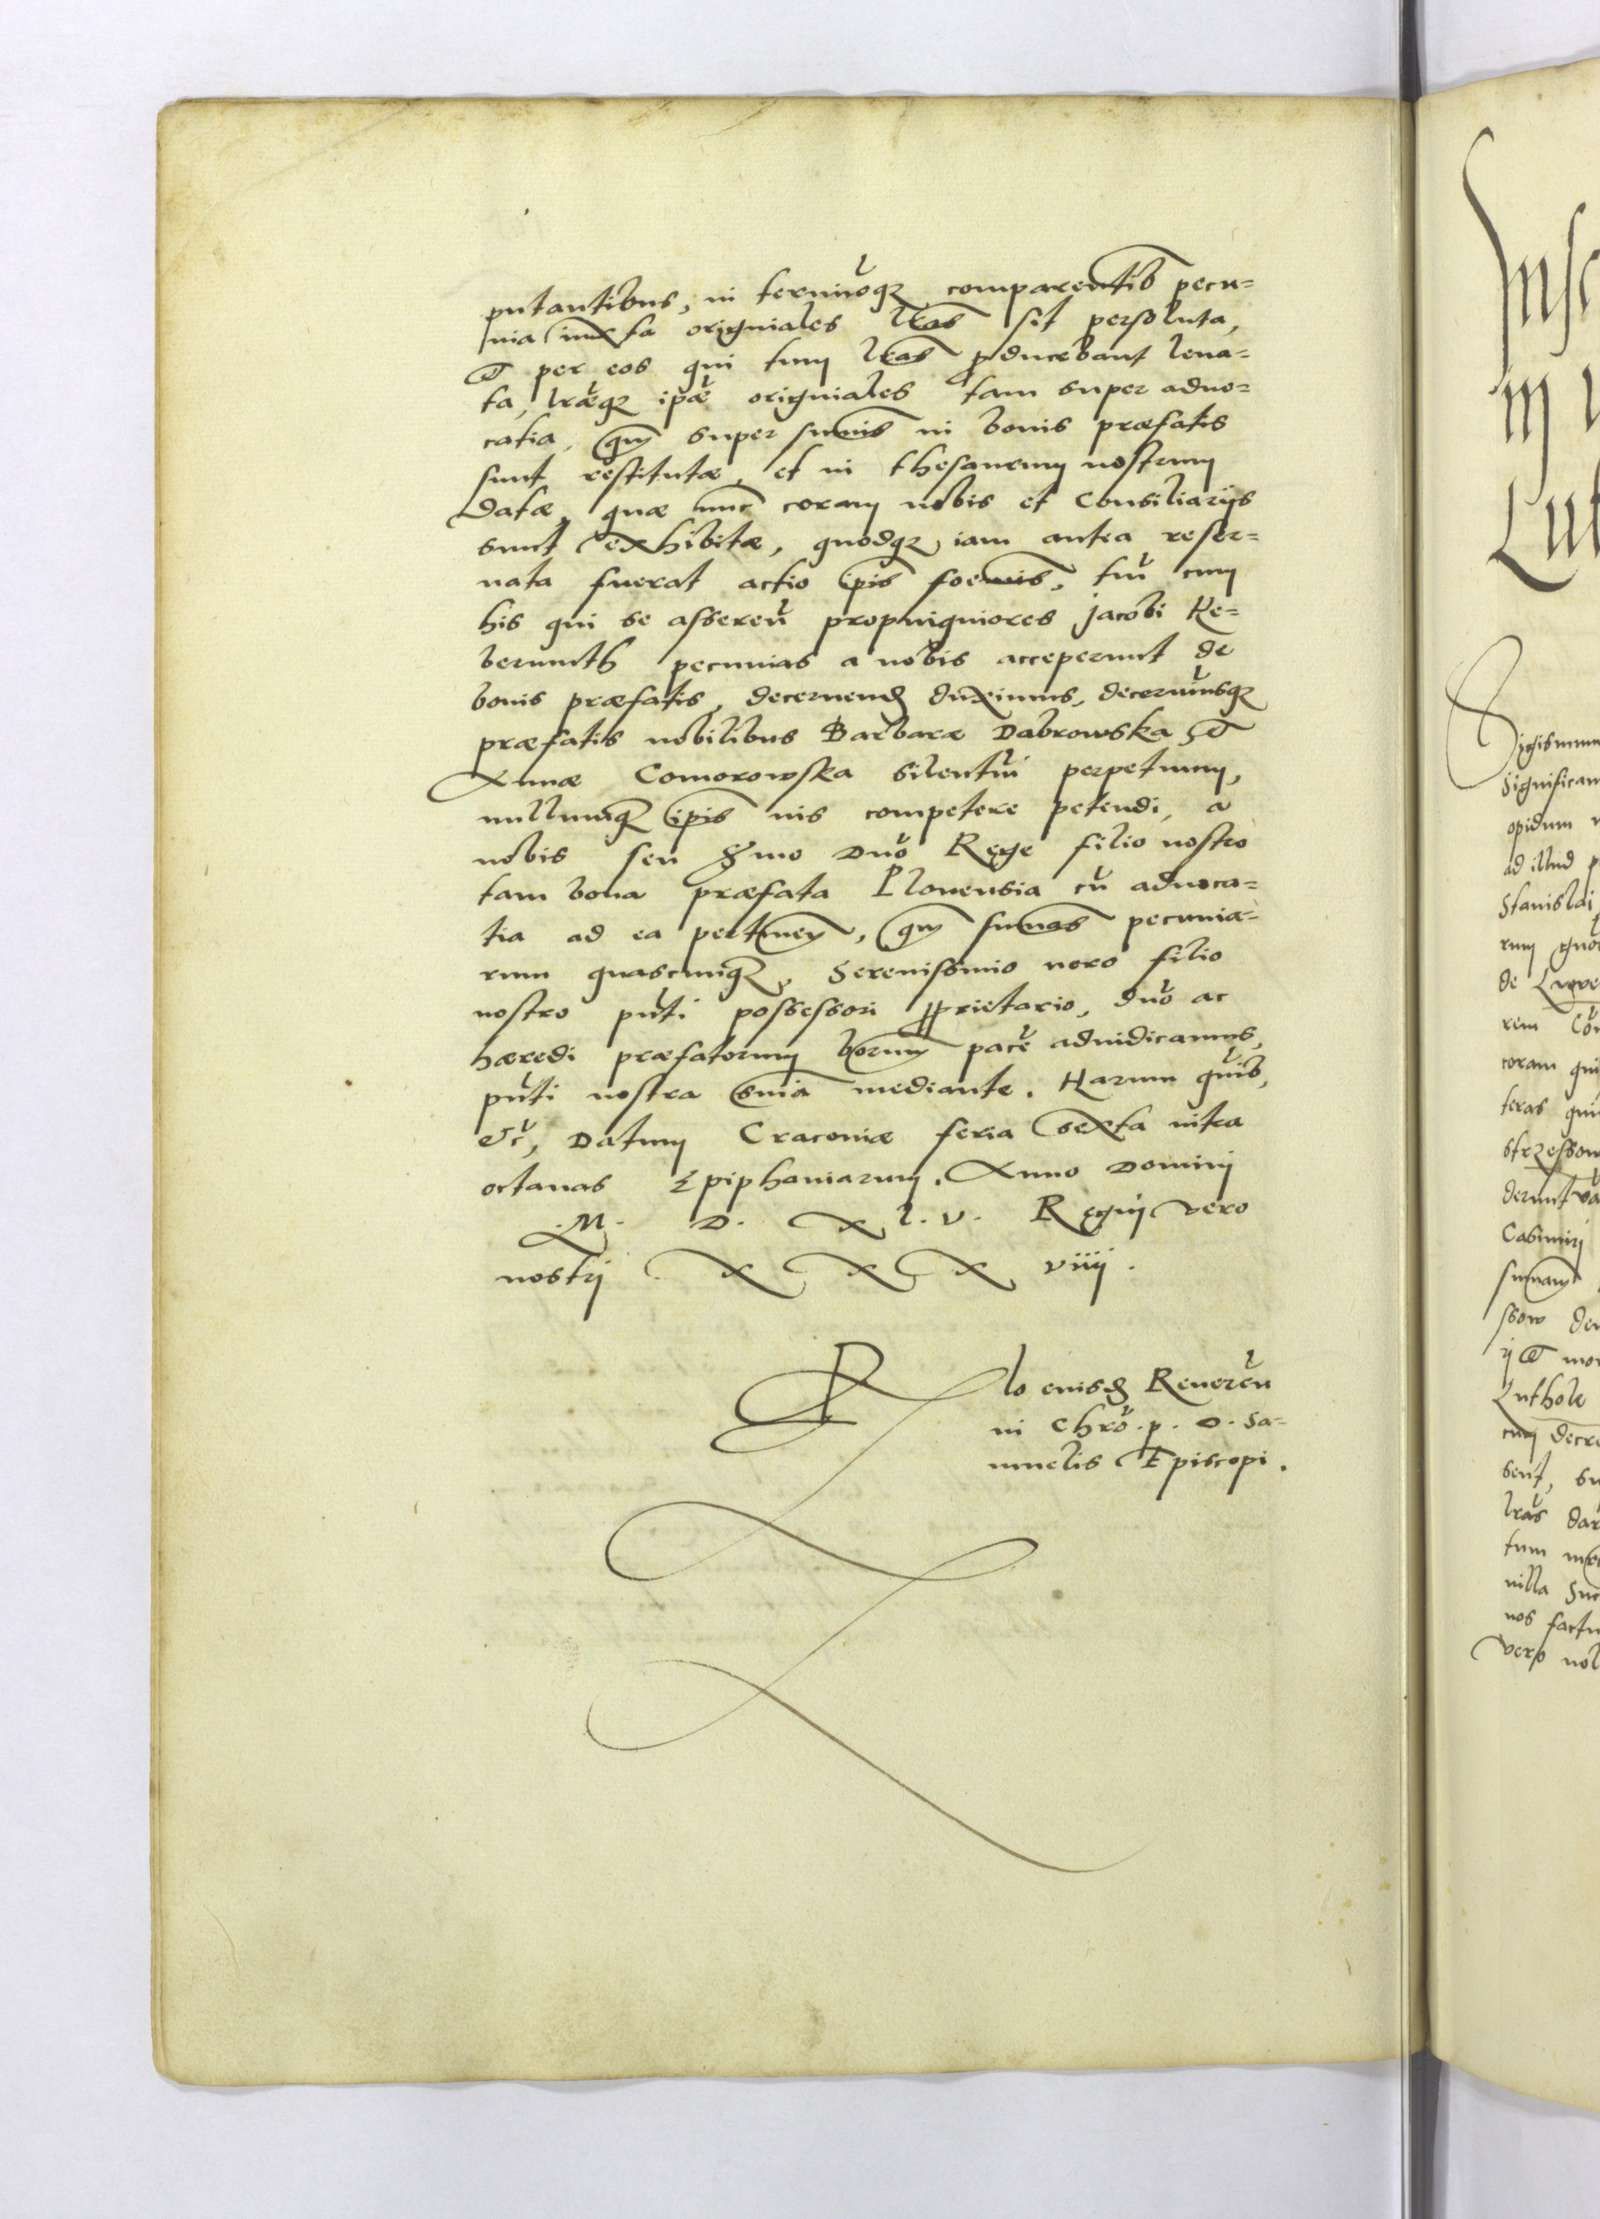 putantibus, in terminoq₃ comparentib pecu=
nia iuxta originales lras sit persoluta,
et per eos qui tum lras producebant leua=
ta, lræq₃ ipæ originales tam super aduo=
catia, qm super sumis in bonis præfatis
sunt restitutæ, et in thesaurum nostrum
datæ, quæ nunc coram nobis et Consiliarijs
sunt exhibitæ, quodq₃ iam antea reser=
uata fuerat actio ipis foemis, tm cum
his qui se asseren propinquiores Jacobi Ke=
berumth pecunias a nobis acceperunt de
bonis præfatis, decernend duximus, decernimusq₃
præfatis nobilibus Barbaræ Dabrowska et
Annæ Comorowska silentiu perpetuum,
nullumq₃ ipis ius competere petendi, a
nobis seu Smo Dno Rege filio nostro
tam bona præfata Plonensia cu aduoca=
tia ad ea pertinen, qm sumas pecunia=
rum quascunq₃, Serenissimo vero filio
nostro pnti possessori proprietario, dno ac
hæredi præfatorum bonorum pace adiudicamus,
pnti nostra snia mediante. Harum quib,
etc, Datum Cracouiæ feria sexta intra
octauas Epiphaniarum. Anno Dominj
.M. D. X l. v. Regnj vero
nostrj X X X viiij.
Rlo eiusd Reueren
in Chro. p. D. Sa=
muelis Episcopi.
Insc
in
Lut
Sigismun
Significam
opidum
ad illud p
Stanislai
rum quo
de
rem Con
coram qui
teras
derunt
Casimirj
sumam
ssow
ij et mor
Luthole
cum decre
sent, su
lras dar
tum
uilla Suc
nos factu
vero nol